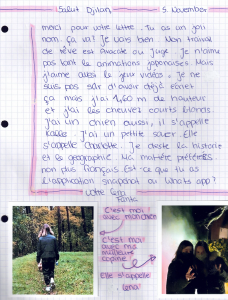 Salut Djilan 5. November
merci pour votre lettre. Tu as un joli
nom. Ça va? Je vais bien. Mon travail
de rêve est Avocate ou Juge. Je n'aime
pas tant les animations japonaises. Mais
j'aime aussi le jeux vidéos. Je ne
suis pas sûr d'avoir déjà écrit
ça mais j'ai 1,60 m de hauteur
et j'ai les cheveux courts blonds.
J'ai un chien aussi, il s'appelle
J'ai un petite sœur. Elle
s'appelle Charlotte. Je deste la histoire
et es geographie. Ma matière préférées
non plus français Est-ce que tu as
l'application snapchat ou Whats app?
votre
C'est moi
avec mon chien
C'est moi
avec ma
meilleure
copine
Elle s'appelle
Lena!